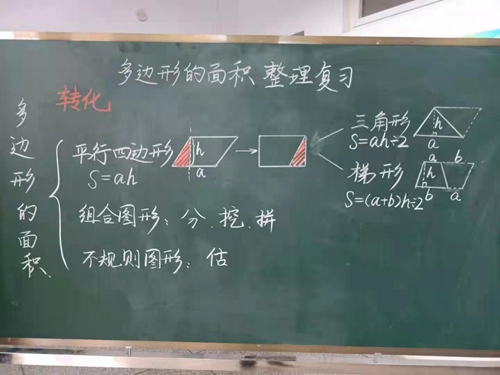 多边形的面积 整理复习
转化
多边形的面积
平行四边形
S=ah
h
a
三角形
S=ah÷2
h
a
梯形
S=(a+b)h÷2
a
b
h
b
a
组合图形：分、挖、拼
不规则图形：估